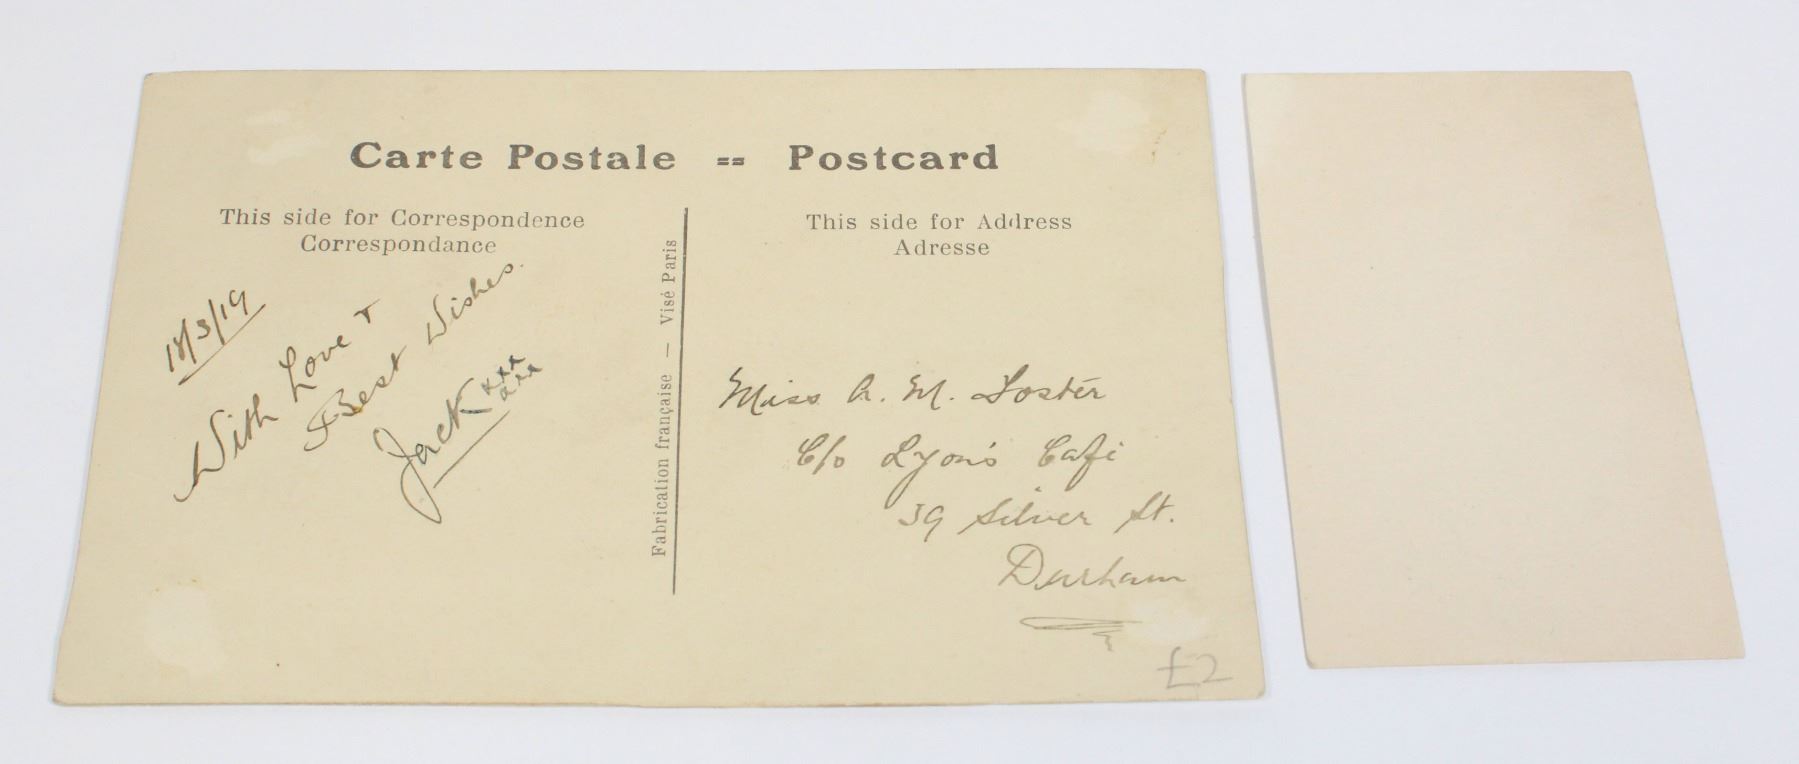 Carte Postale == Postcard
This side for Correspondence
Correspondance
18/3/19
With Love &
Best Wishes.
Jack xxx
xxx
Fabrication française — Visé Paris
This side for Address
Adresse
Miss A. M. Foster
C/o Lyon's Cafe
39 Silver St.
Durham
£2